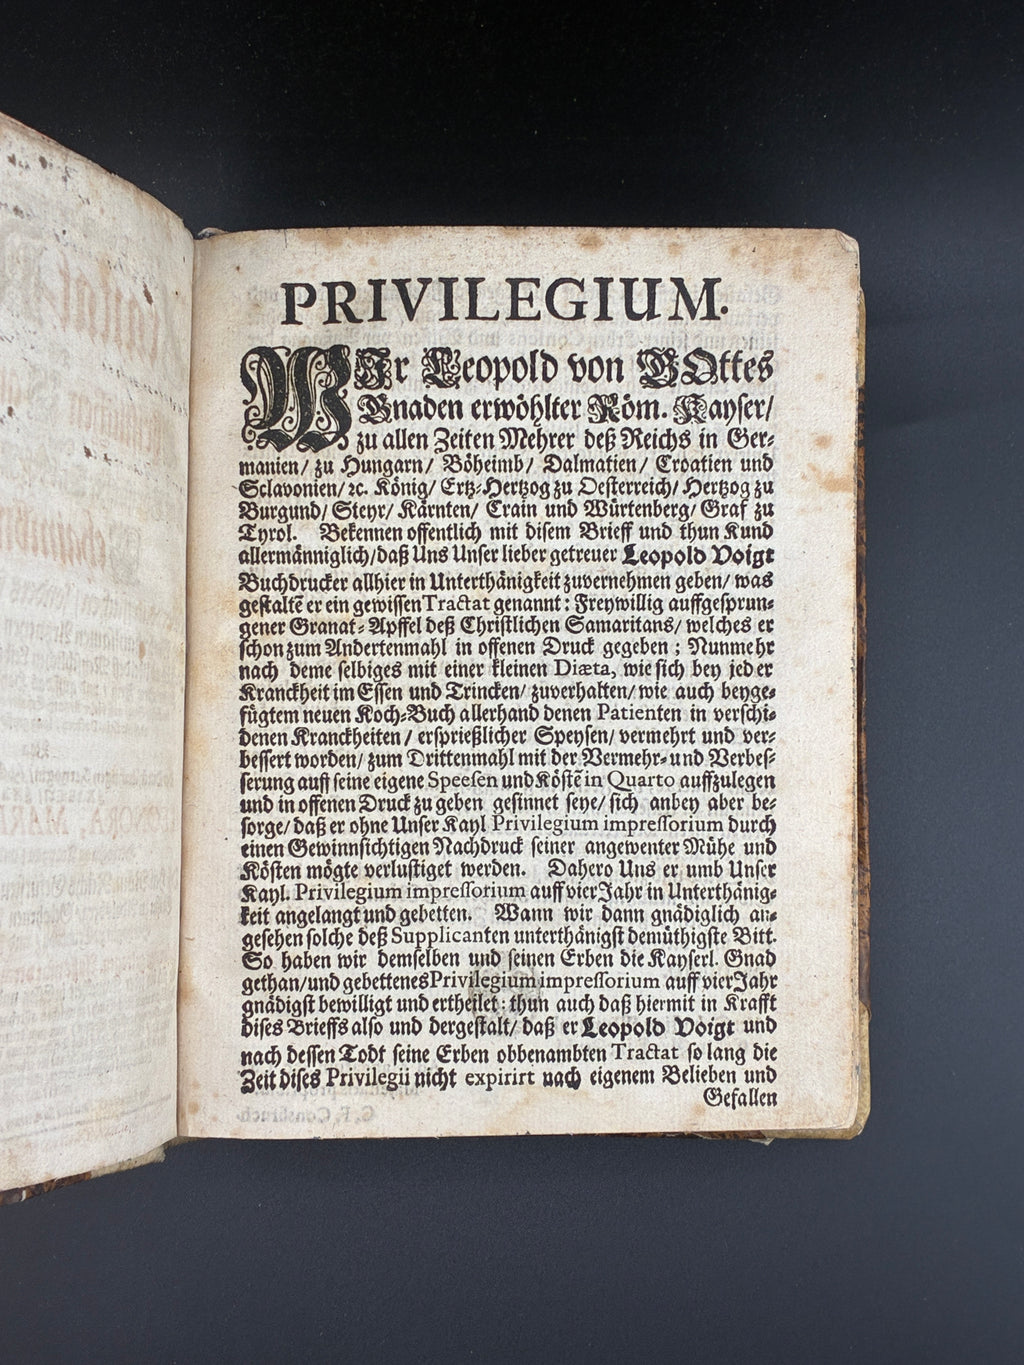 PRIVILEGIUM.
WIr Leopold von GOttes
Gnaden erwöhlter Röm. Kayser/
zu allen Zeiten Mehrer deß Reichs in Ger-
manien/ zu Hungarn/ Böheimb/ Dalmatien/ Croatien und
Sclavonien/ ꝛc. König/ Ertz-Hertzog zu Oesterreich/ Hertzog zu
Burgund/ Steyr/ Kärnten/ Crain und Würtenberg/ Graf zu
Tyrol. Bekennen offentlich mit disem Brieff und thun Kund
allermänniglich/ daß Uns Unser lieber getreuer Leopold Voigt
Buchdrucker allhier in Unterthänigkeit zuvernehmen geben/ was
gestaltē er ein gewissen Tractat genannt: Freywillig auffgesprun-
gener Granat-Apffel deß Christlichen Samaritans/ welches er
schon zum Andertenmahl in offenen Druck gegeben; Nunmehr
nach deme selbiges mit einer kleinen Diæta, wie sich bey jeder
Kranckheit im Essen und Trincken/ zuverhalten/ wie auch beyge-
fügtem neuen Koch-Buch allerhand denen Patienten in verschi-
denen Kranckheiten/ ersprießlicher Speysen/ vermehrt und ver-
bessert worden/ zum Drittenmahl mit der Vermehr- und Verbes-
serung auff seine eigene Speesen und Köstē in Quarto auffzulegen
und in offenen Druck zu geben gesinnet seye/ sich anbey aber be-
sorge/ daß er ohne Unser Kayl Privilegium impressorium durch
einen Gewinnsichtigen Nachdruck seiner angewenter Mühe und
Kösten mögte verlustiget werden. Dahero Uns er umb Unser
Kayl. Privilegium impressorium auff vier Jahr in Unterthänig-
keit angelangt und gebetten. Wann wir dann gnädiglich an-
gesehen solche deß Supplicanten unterthänigst demüthigste Bitt.
So haben wir demselben und seinen Erben die Kayserl. Gnad
gethan/ und gebettenes Privilegium impressorium auff vier Jahr
gnädigst bewilligt und ertheilet: thun auch daß hiermit in Krafft
dises Brieffs also und dergestalt/ daß er Leopold Voigt und
nach dessen Todt seine Erben obbenambten Tractat so lang die
Zeit dises Privilegii nicht expirirt nach eigenem Belieben und
Gefallen